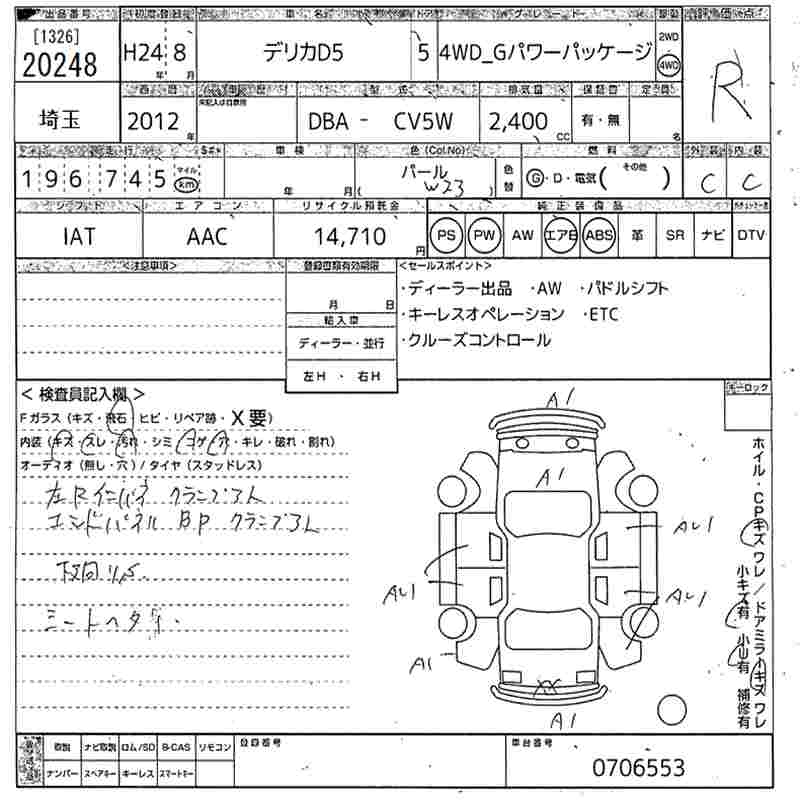 出品番号 初度登録年 車名 ドア グレード 駆動 評価点
[1326]
20248 H24 8 デリカD5 5 4WD_Gパワーパッケージ 2WD 4WD R
年 月
埼玉 西暦 車歴 型式 排気量 保証書 定員
未記入は自家用
2012 年 DBA - CV5W 2,400 CC 有・無 名
走行 車検 色(Col.No) 燃料 外装 内装
196,745 マイル km 年 月 パール W23 色替 G・D・電気( その他 ) C C
シフト エアコン リサイクル預託金 純正装備品
IAT AAC 14,710 円 PS PW AW エアB ABS 革 SR ナビ DTV
<注意事項> 登録書類有効期限 <セールスポイント>
月 日
・ディーラー出品 ・AW ・パドルシフト
輸入車
・キーレスオペレーション ・ETC
ディーラー・並行
・クルーズコントロール
左H ・ 右H
< 検査員記入欄 > キーロック
Fガラス (キズ・飛石・ヒビ・リペア跡・X要)
内装 (キズ・スレ・汚れ・シミ・コゲ・穴・キレ・破れ・割れ)
オーディオ (無し・穴) / タイヤ (スタッドレス)
左Rインパネ クランプ3ム
エンドパネル BP クランプ3ム
下回り
シートヘタ
A1
A1
AU1
AU1
AU1
A1
XX
A1
ホイル・CPキズワレ / ドアミラーキズワレ
小キズ有 小凹有 補修有
取説 ナビ取説 ロム/SD B-CAS リモコン 登録番号 車台番号
ナンバー スペアキー キーレス スマートキー 0706553